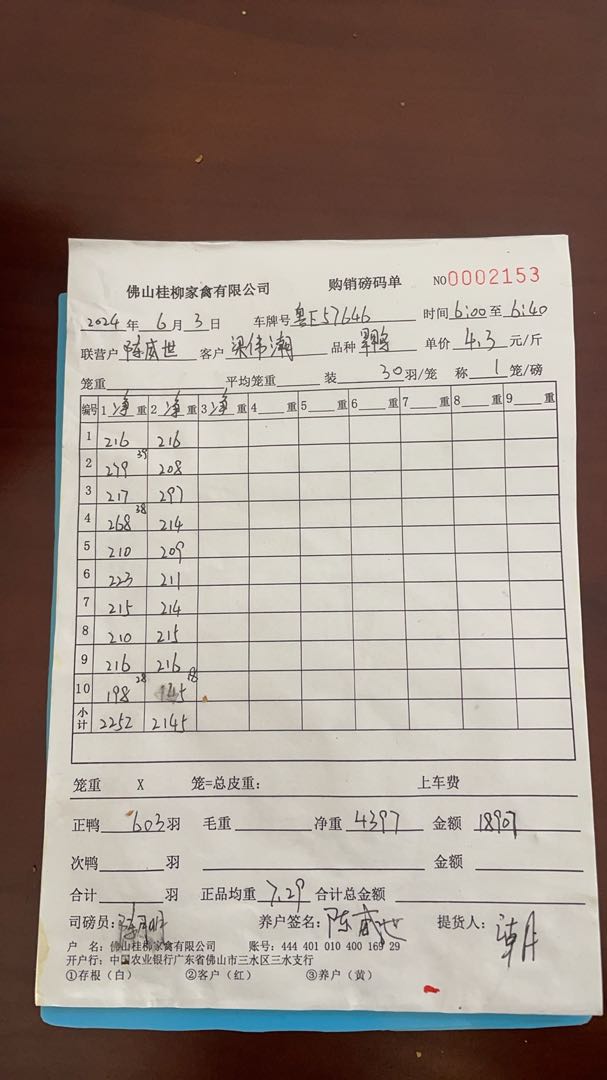 佛山桂柳家禽有限公司 购销磅码单 NO0002153
2024 年 6 月 3 日 车牌号 粤E57646 时间 6:00 至 6:40
联营户 陈威世 客户 梁伟潮 品种 单价 4.3 元/斤
笼重 平均笼重 装 30 羽/笼 称 1 笼/磅
编号 1 净 重 2 净 重 3 净 重 4 重 5 重 6 重 7 重 8 重 9 重
1 216 216
2 279 39 208
3 217 297
4 268 38 214
5 210 209
6 223 211
7 215 214
8 210 215
9 216 216
10 198 28 145 18
小计 2252 2145
笼重 X 笼=总皮重: 上车费
正鸭 603 羽 毛重 净重 4397 金额 18907
次鸭 羽 金额
合计 羽 正品均重 7.29 合计总金额
司磅员: 养户签名: 陈威世 提货人:
户 名: 佛山桂柳家禽有限公司 账号: 444 401 010 400 169 29
开户行: 中国农业银行广东省佛山市三水区三水支行
①存根（白） ②客户（红） ③养户（黄）